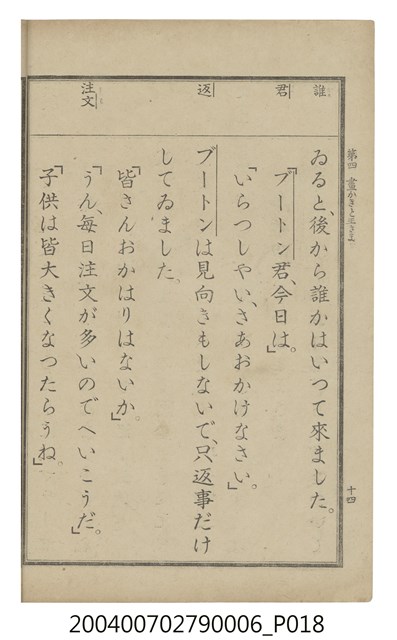 第四 畫かきと王さま
十四
誰
君
返
注文
ゐると、後から誰かはいつて來ました。
「ブートン君、今日は。」
「いらつしやい、さあおかけなさい。」
ブートンは見向きもしないで、只返事だけ
してゐました。
「皆さんおかはりはないか。」
「うん、毎日注文が多いのでへいこうだ。」
「子供は皆大きくなつたらうね。」
200400702790006_P018